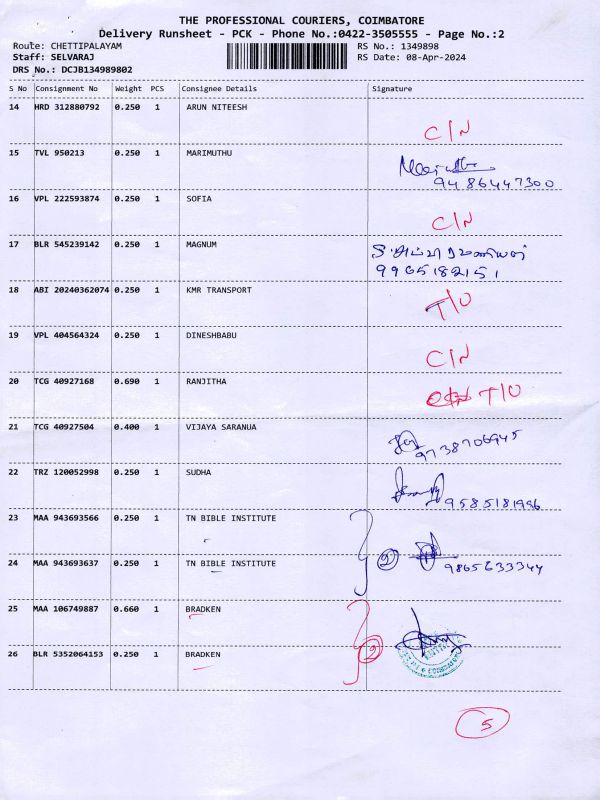 THE PROFESSIONAL COURIERS, COIMBATORE
Delivery Runsheet - PCK - Phone No.:0422-3505555 - Page No.:2
Route: CHETTIPALAYAM
RS No.: 1349898
Staff: SELVARAJ
RS Date: 08-Apr-2024
DRS No.: DCJB134989802
S No Consignment No Weight PCS Consignee Details Signature
14 HRD 312880792 0.250 1 ARUN NITEESH
C/N
15 TVL 950213 0.250 1 MARIMUTHU
9486447300
16 VPL 222593874 0.250 1 SOFIA
C/N
17 BLR 545239142 0.250 1 MAGNUM
9965182151
18 ABI 20240362074 0.250 1 KMR TRANSPORT
T/O
19 VPL 404564324 0.250 1 DINESHBABU
C/N
20 TCG 40927168 0.690 1 RANJITHA
T/O
21 TCG 40927504 0.400 1 VIJAYA SARANUA
9738706945
22 TRZ 120052998 0.250 1 SUDHA
23 MAA 943693566 0.250 1 TN BIBLE INSTITUTE
2
24 MAA 943693637 0.250 1 TN BIBLE INSTITUTE
9865633344
25 MAA 106749887 0.660 1 BRADKEN
2
26 BLR 5352064153 0.250 1 BRADKEN
5